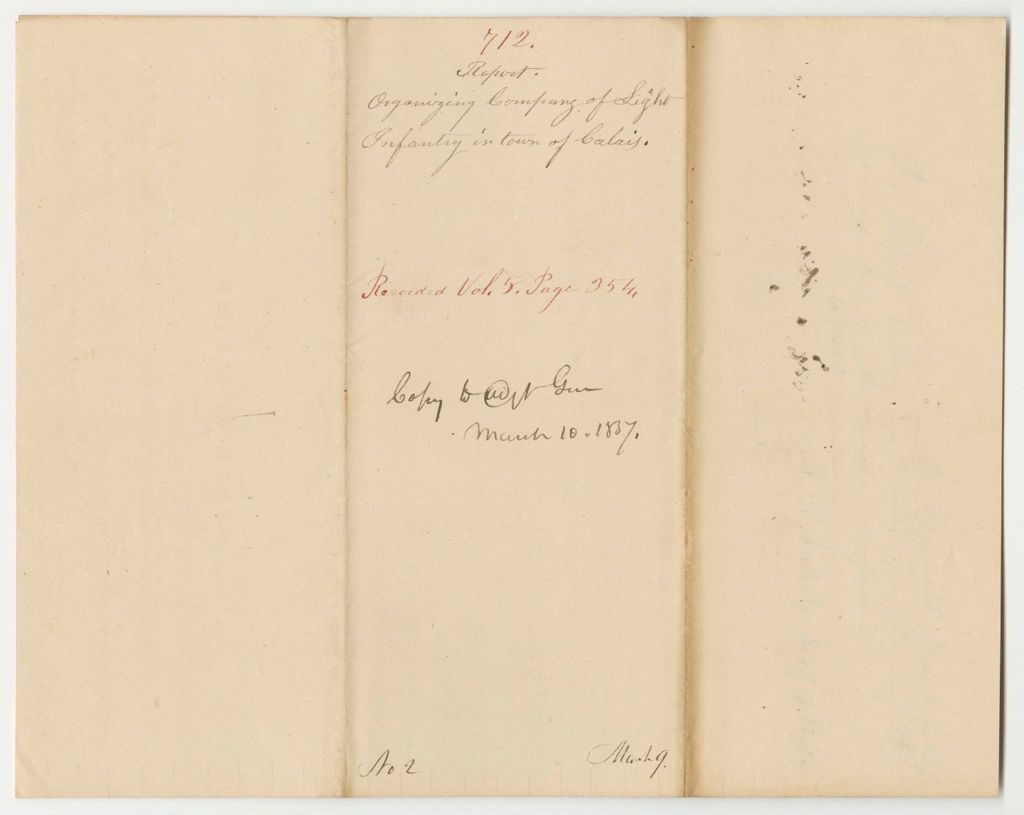 712.
Report.
Organizing Company of Light
Infantry in town of Calais.
Recorded Vol. 5. Page 354,
Copy to Adjt Gen
March 10. 1837.
No 2
March 9.